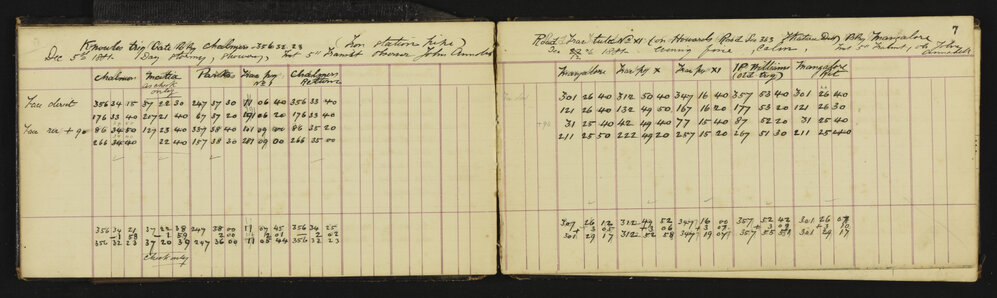 Knowles trig (Date Bdy Chalmers 356 32 23 (Iron station Pike)
Dec 5th 18 Day Stormy, Showery, Inst 5" Transit observer John Annabell
Chalmers Matha Parikia Trav peg No 1 Chalmers Return
as check only
Face direct 356 34 15 37 22 30 247 37 30 11 06 40 356 33 40
176 33 40 217 21 40 67 37 20 191 06 20 176 33 40
Face rev + 90 86 34 50 129 23 40 337 38 40 101 09 00 86 35 20
266 34 40 22 40 157 38 30 281 09 00 266 35 00
356 34 21 37 22 38 247 38 00 11 07 45 356 34 25
- 1 58 - 1 59 2 00 2 01 - 2 02
356 32 23 37 20 39 247 36 00 11 05 44 356 32 23
Check only
7
Trav No XI (on Howards Road Sec 363 Bdy Mangalore
evening fine, Calm, Inst 5" Transit, John Annabell
Mangalore Trav peg X Trav peg XI JP Williams (Old trig) Mangalore Ret
301 26 40 312 50 40 347 16 40 357 53 40 301 26 40
121 26 40 132 49 50 167 16 20 177 53 20 121 26 30
+ 90 31 25 40 42 49 40 77 15 40 87 52 20 31 25 40
211 25 50 222 49 20 257 15 20 267 51 30 211 25 40
301 26 12 312 49 52 347 16 00 357 52 42 301 26 07
+ 3 05 + 3 06 + 3 07 + 3 09 + 3 10
301 29 17 312 52 58 347 19 07 357 55 51 301 29 17